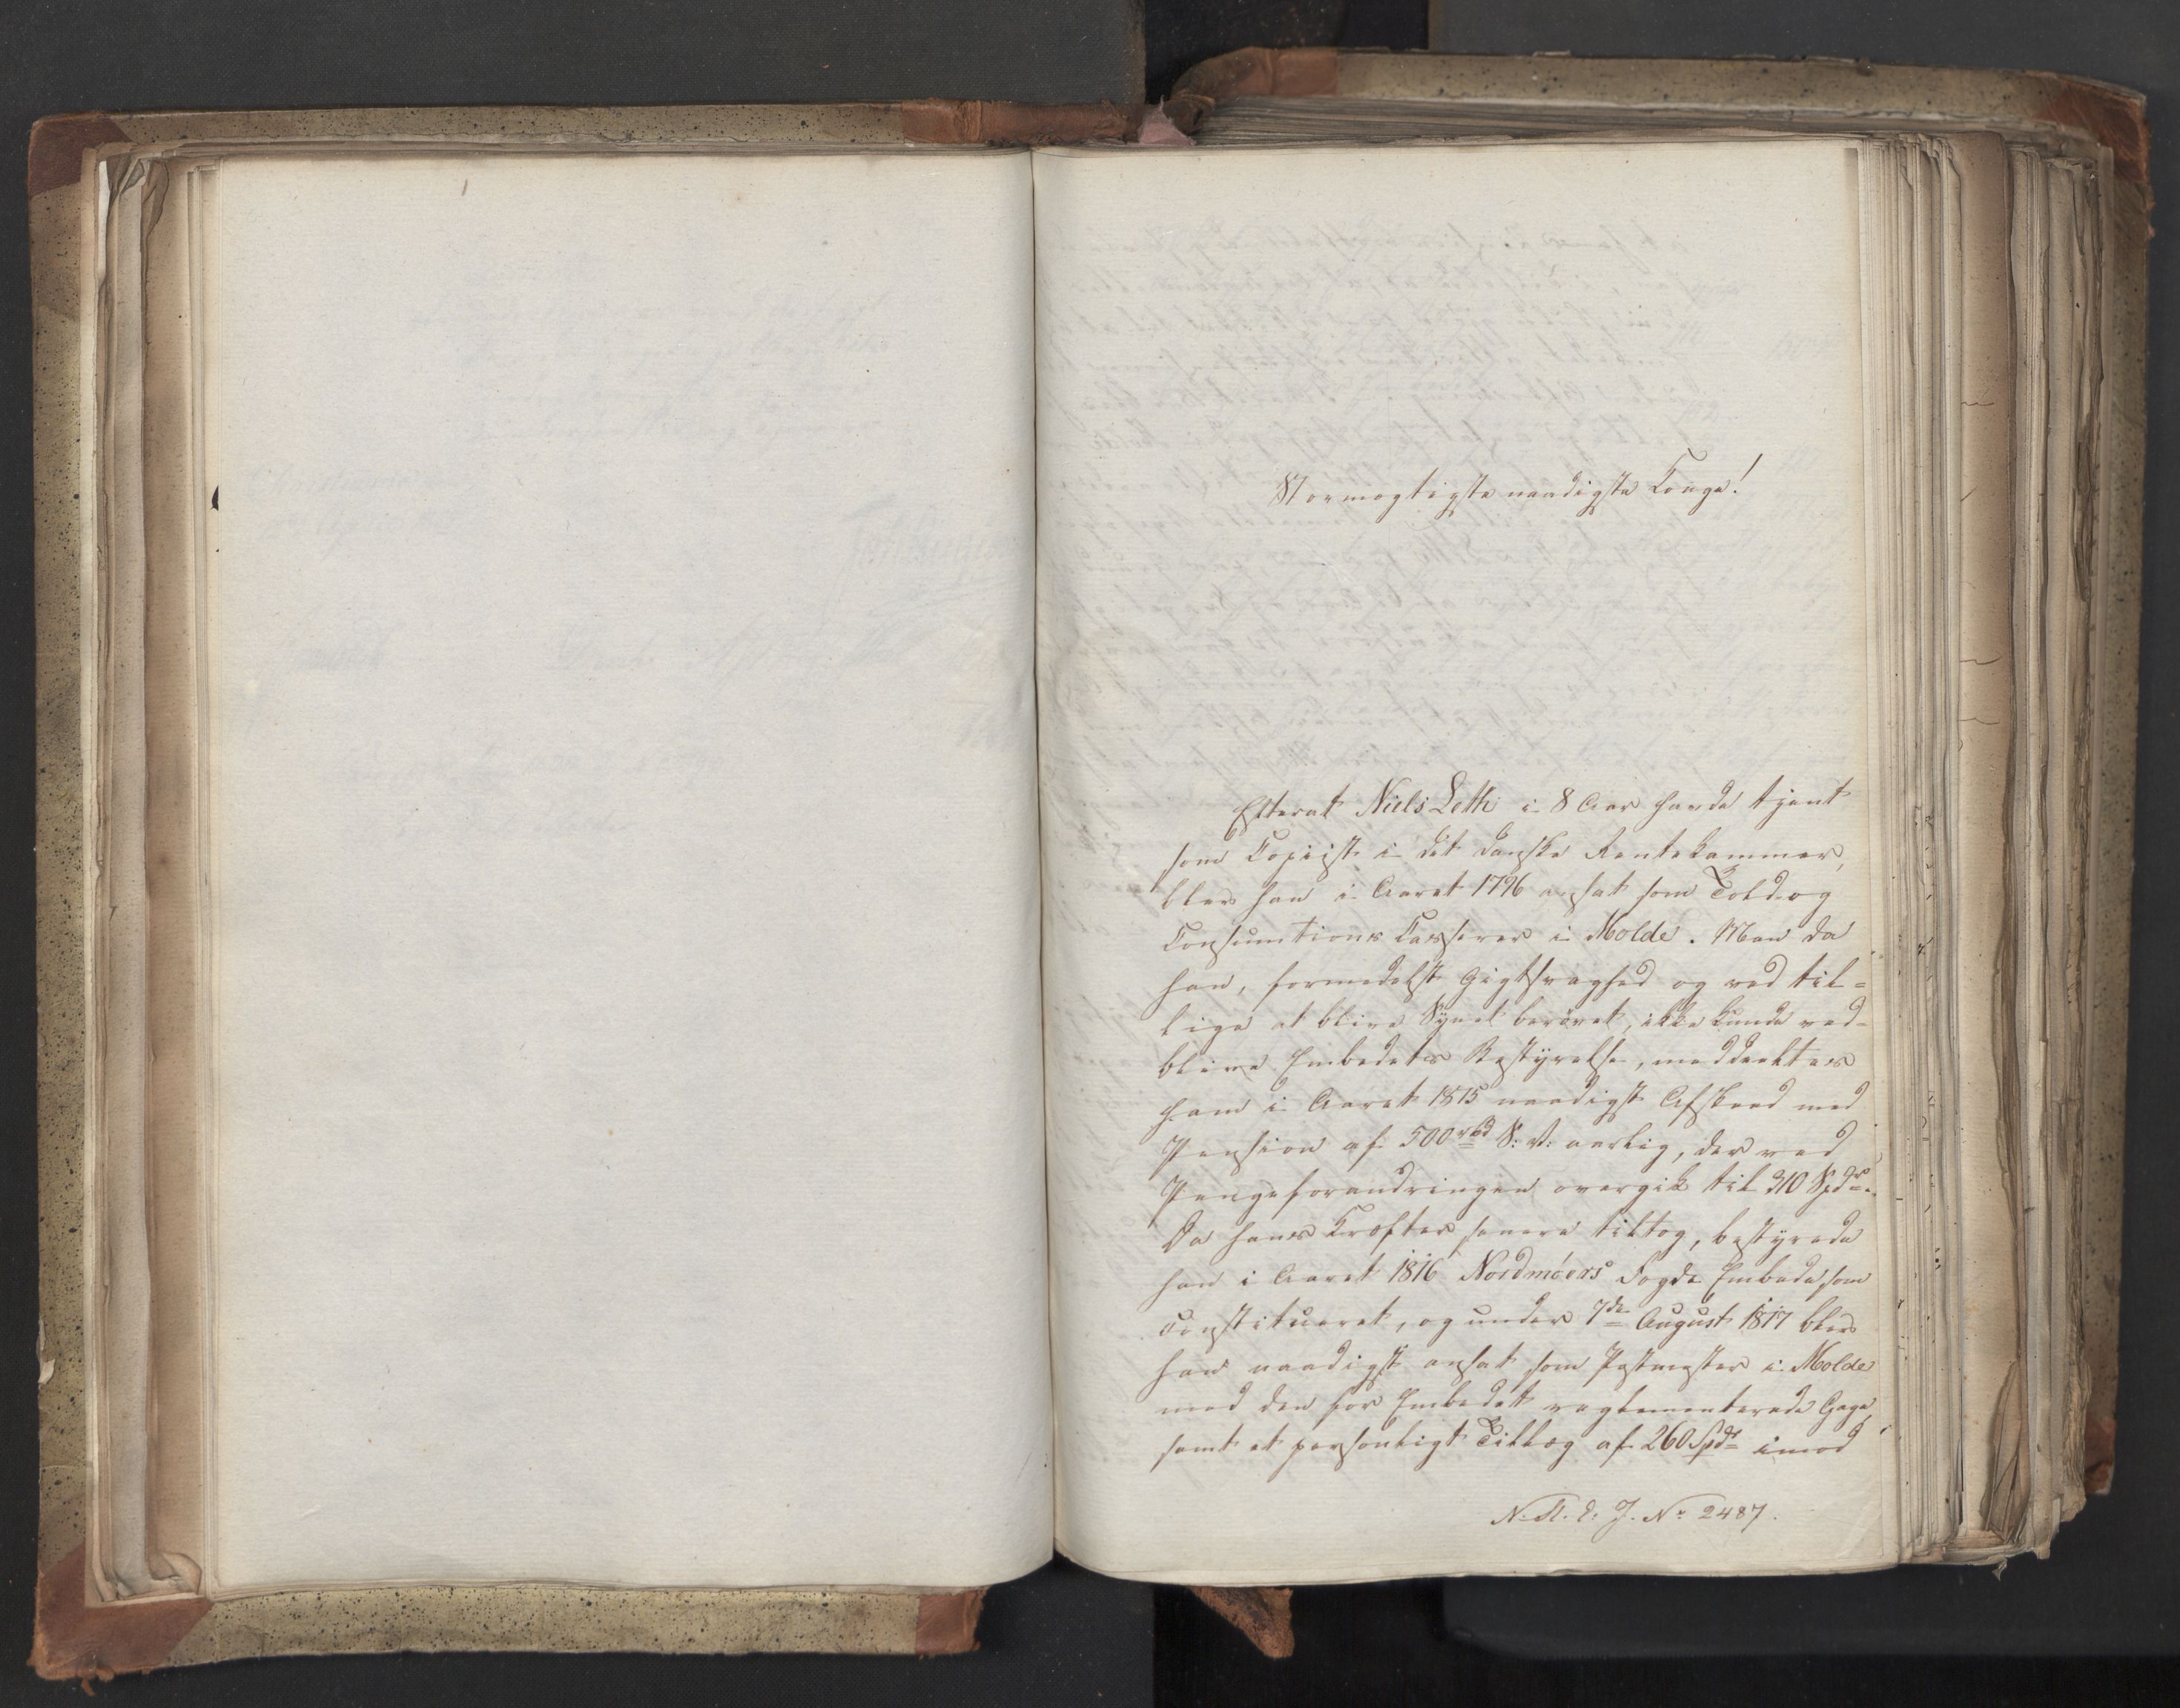 Stormægtigste naadigste Konge!
Efterat Niels Leth i 8 Aar havde tjent
som Copiist i det danske Rentekammer,
blev han i Aaret 1796 ansat som Told og
Consumtions Casserer i Molde. Men da
han, formedelst Gigtsvaghed og ved til-
lige at blive Synet berøvet, ikke kunde ved-
blive Embedets Bestyrelse, meddeeltes
ham i Aaret 1815 naadigst Afskeed med
Pension af 500 rbd S: V: aarlig, der ved
Pengeforandringen overgik til 310 Spdr.
Da hans Kræfter senere tiltog, bestyrede
han i Aaret 1816 Nordmøers Fogde Embede, som
Constitueret, og under 7de August 1817 blev
han naadigst ansat som Postmester i Molde
med den for Embedet reglementerede Gage,
samt et personligt Tillæg af 260 Spdr imod
No 2487.